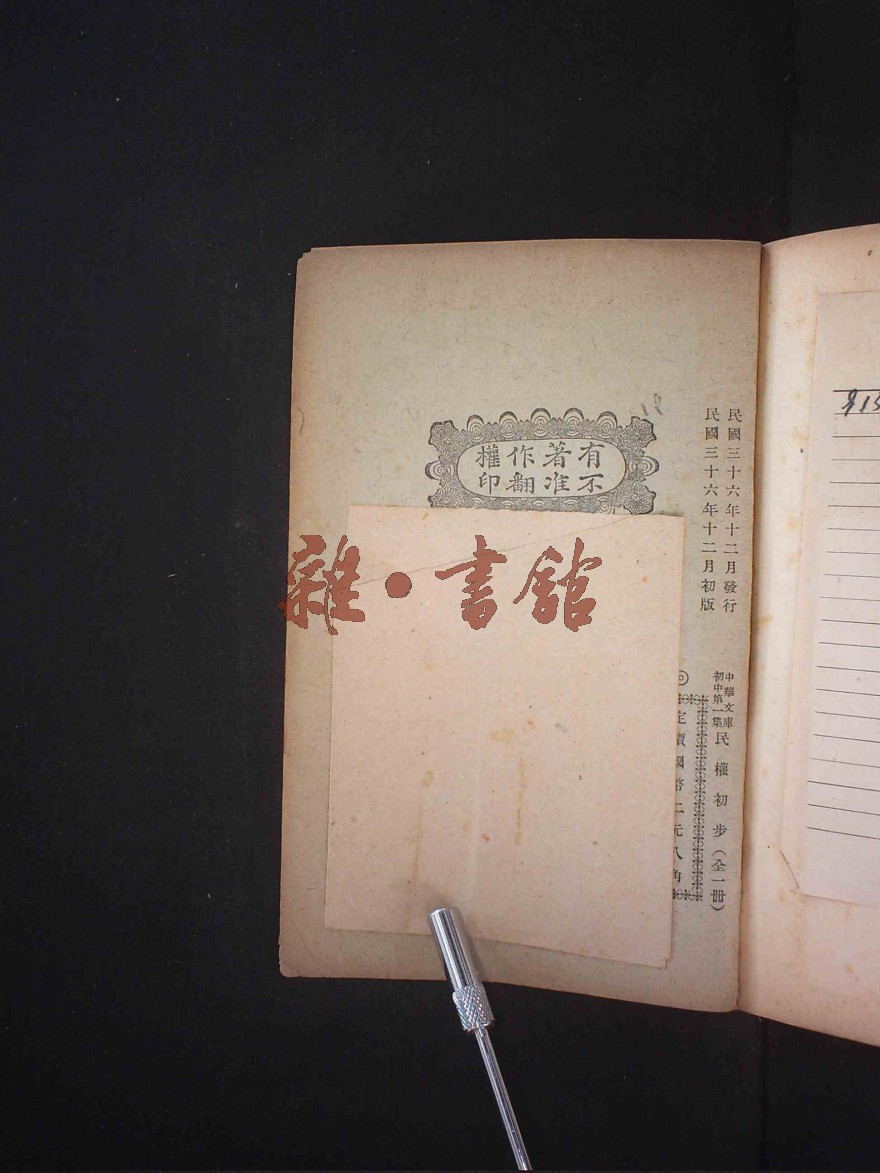 民國三十六年十二月發行
民國三十六年十二月初版
中華文庫
初中第一集
民權初步（全一冊）
定價國幣二元八角
有著作權
不准翻印
雜·書館